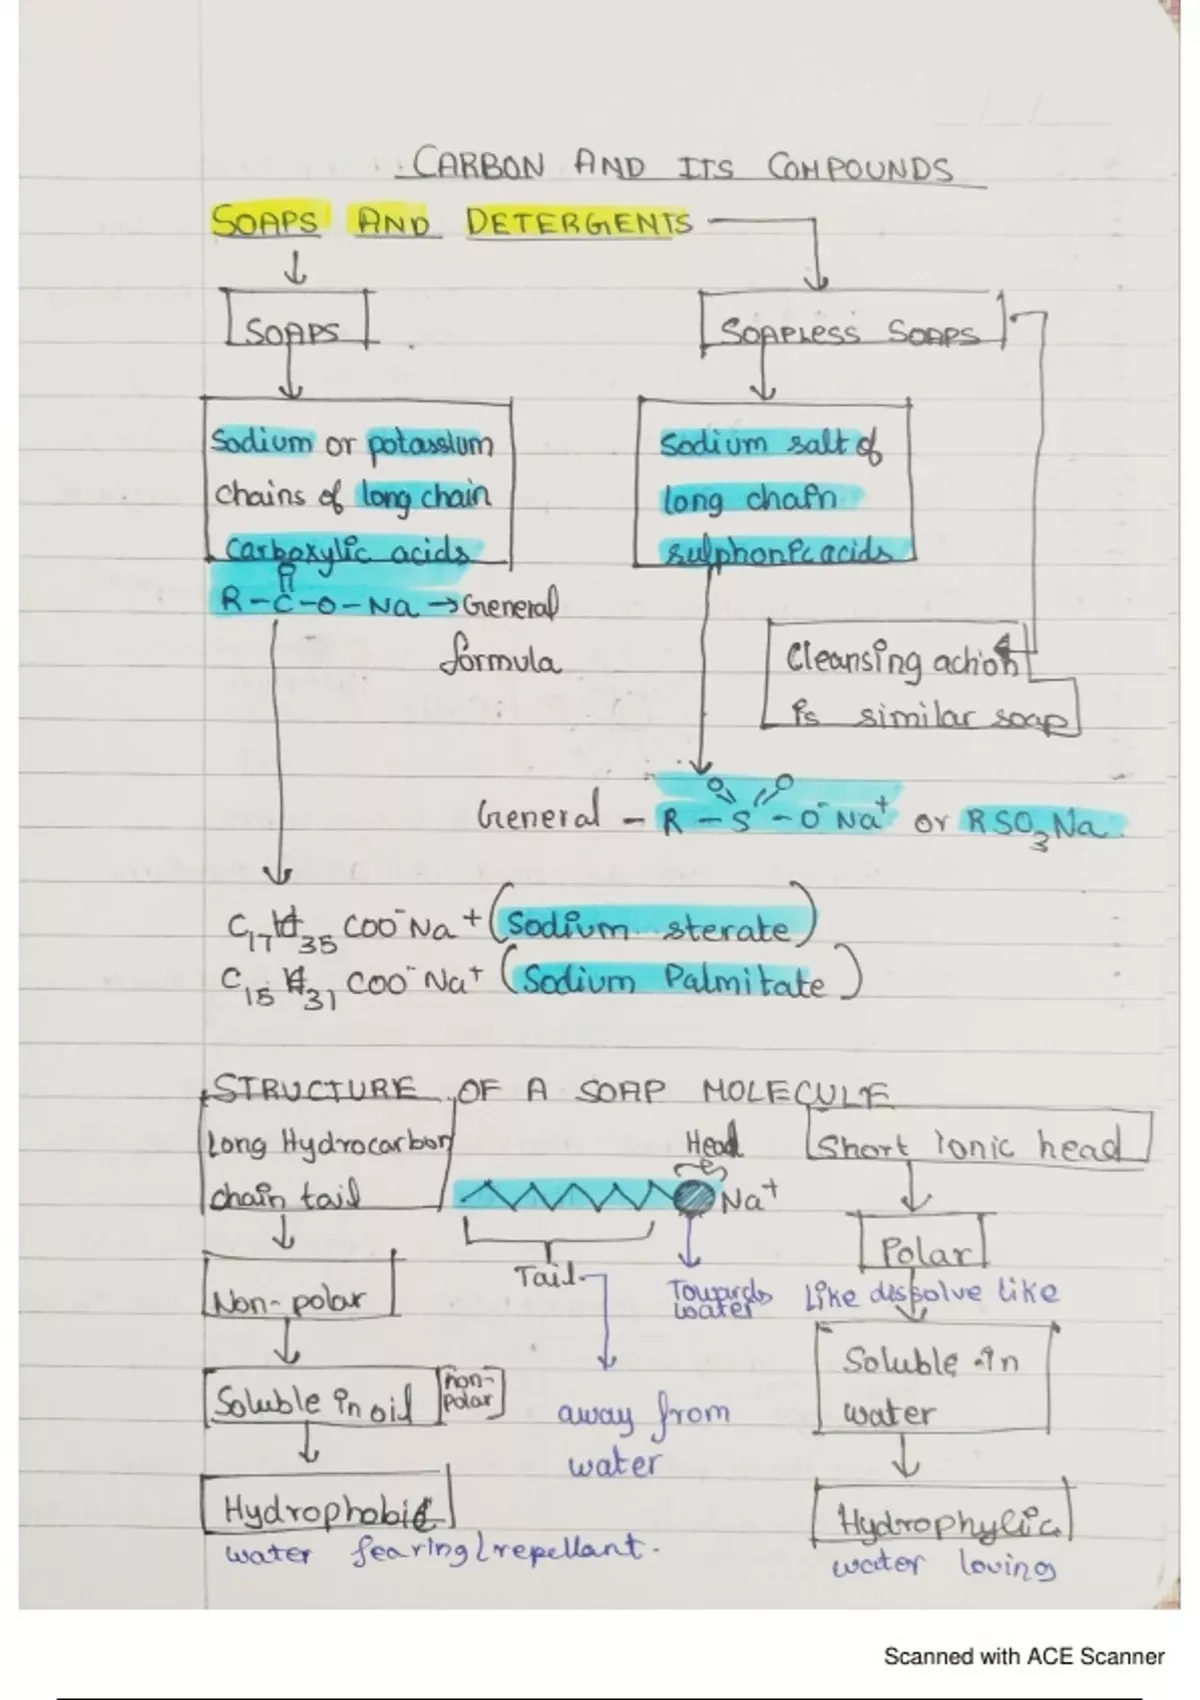 CARBON AND ITS COMPOUNDS
SOAPS AND DETERGENTS
SOAPS
SOAPLESS SOAPS
Sodium or potassium
chains of long chain
carboxylic acids
R-C-O-Na → General
formula
O
Sodium salt of
long chain
sulphonic acids
Cleansing action
is similar soap
General - R - S - O⁻Na⁺ or RSO₃Na
O O
C₁₇H₃₅ COO⁻Na⁺ (Sodium sterate)
C₁₅H₃₁ COO⁻Na⁺ (Sodium Palmitate)
STRUCTURE OF A SOAP MOLECULE
Long Hydrocarbon
chain tail
Non-polar
Soluble in oil
non-
polar
Hydrophobic
water fearing/repellant.
Head
Na⁺
Tail
Towards
water
away from
water
Short ionic head
Polar
Like dissolve like
Soluble in
water
Hydrophylic
water loving
Scanned with ACE Scanner